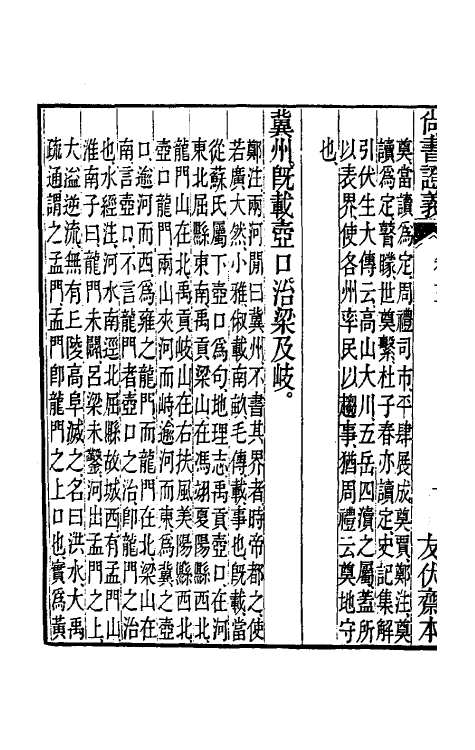 尚書證義
友伏齋本
奠當讀爲定周禮司市平肆展成奠賈鄭注奠
讀爲定瞽矇世奠繫杜子春亦讀定史記集解
引伏生大傳云高山大川五岳四瀆之屬蓋所
以表界使各州率民以趨事猶周禮云奠地守
也
冀州旣載壺口治梁及岐。
鄭注兩河閒曰冀州不書其界者時帝都之使
若廣大然小雅俶載南畝毛傳載事也旣載當
從蘇氏屬下壺口爲句地理志禹貢壺口在河
東北屈縣東南禹貢梁山在馮翊夏陽縣西北
龍門山在北禹貢岐山在右扶風美陽縣西北
壺口龍門兩山夾河而峙逾河而東爲冀之壺
口逾河而西爲雍之龍門而龍門在北梁山在
南言壺口不言龍門者壺口之治卽龍門之治
也水經注河水南逕北屈縣故城西有孟門山
淮南子曰龍門未闢呂梁未鑿河出孟門之上
大溢逆流無有丘陵高阜滅之名曰洪水大禹
疏通謂之孟門孟門卽龍門之上口也實爲黃